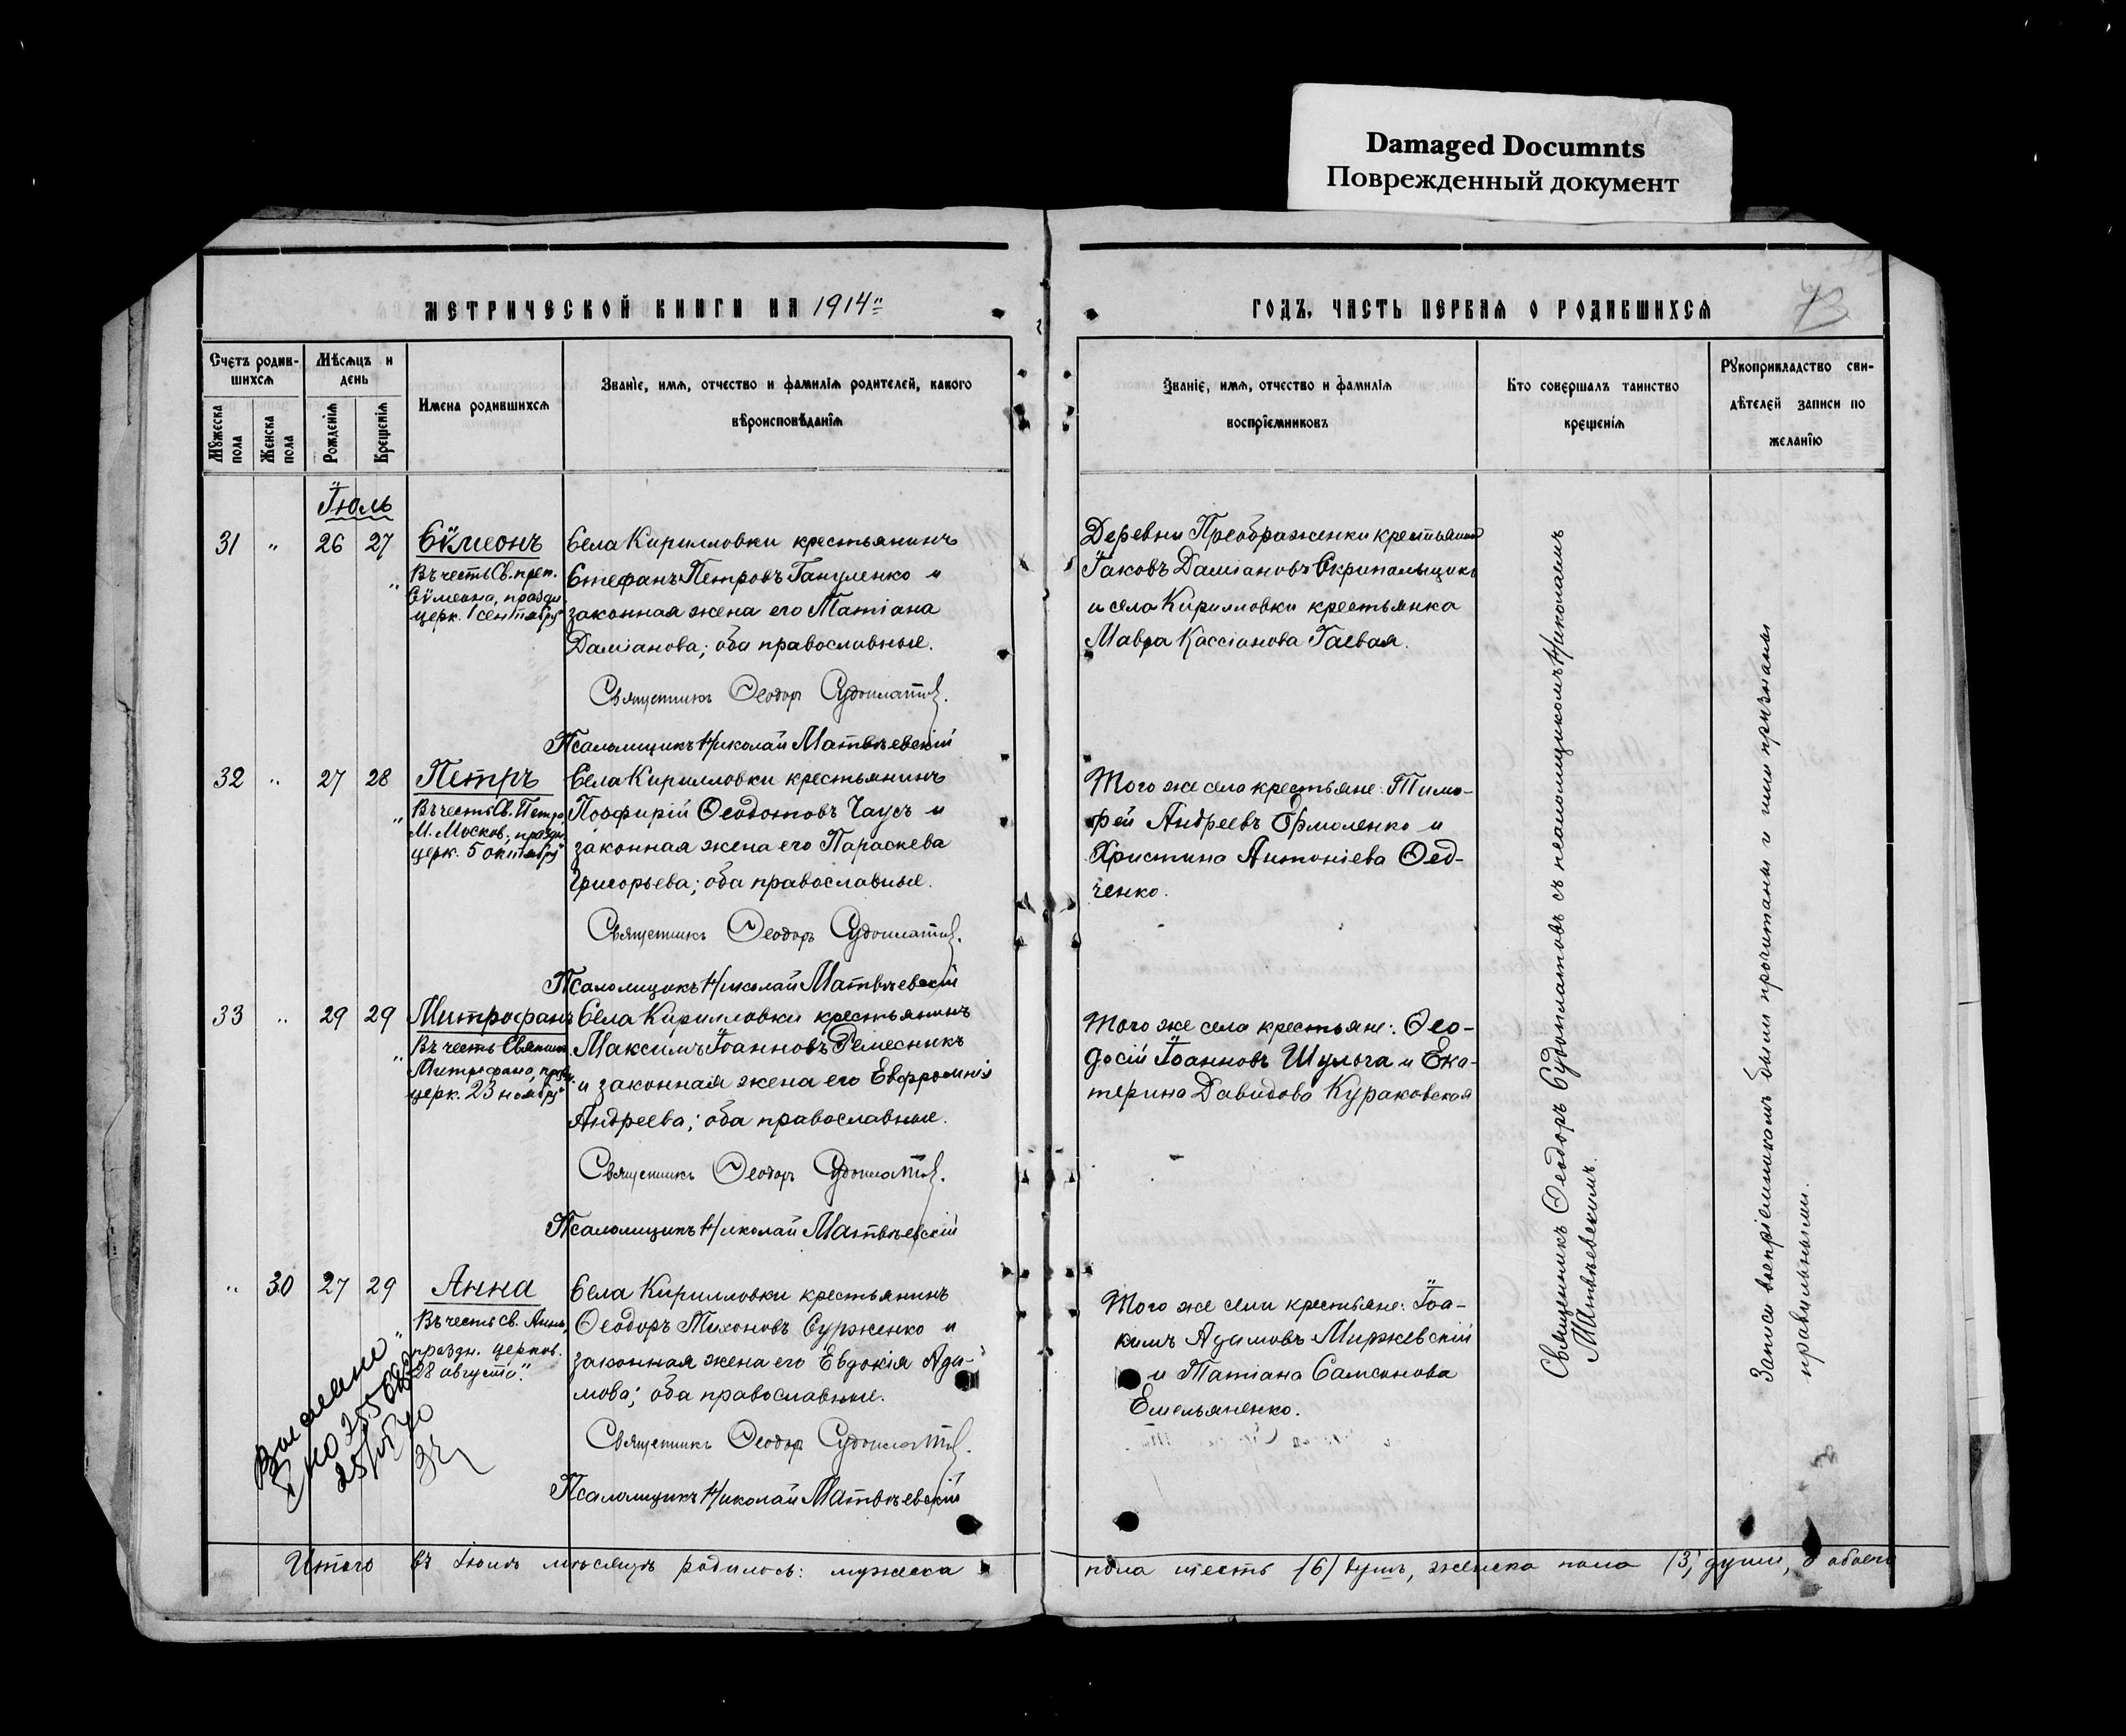 Damaged Documnts
Поврежденный документ
МЕТРИЧЕСКОЙ КНИГИ НА 1914
ГОДЪ, ЧАСТЬ ПЕРВАѦ О РОДИВШИХСѦ
73
Счетъ родив-
шихсѧ
Мꙋжеска
пола
Женска
пола
Мѣсѧцъ и
день
Рожденіѧ
Крещеніѧ
Имена родившихсѧ
Званіе, имѧ, отчество и фамиліѧ родителей, какого
вѣроисповѣданіѧ
Званіе, имѧ, отчество и фамиліѧ
воспріемниковъ
Кто совершалъ таинство
крещеніѧ
Рꙋкоприкладство сви-
дѣтелей записи по
желанію
Іюль
31 " 26 27 Сѵмеонъ
Въ честь Св. преп.
Сѵмеона, праздн.
церк. 1 сентября
Села Кирилловки крестьянинъ
Стефанъ Петровъ Гануленко и
законная жена его Татіана
Даміанова; оба православные.
Священникъ Ѳеодоръ Судоплатов.
Псаломщикъ Николай Матвѣевскій
Деревни Преображенки крестьянинъ
Іаковъ Даміановъ Скрипальщикъ
и села Кирилловки крестьянка
Мавра Кассіанова Гаевая.
32 " 27 28 Петръ
Въ честь Св. Петра,
М. Москов., праздн.
церк. 5 октября
Села Кирилловки крестьянинъ
Порфирій Ѳеодотовъ Чаусъ и
законная жена его Параскева
Григорьева; оба православные.
Священникъ Ѳеодоръ Судоплатов.
Псаломщикъ Николай Матвѣевскій
Того же села крестьяне: Тимо-
фей Андреевъ Ермоленко и
Христина Антоніева Ѳед-
ченко.
33 " 29 29 Митрофанъ
Въ честь Святит.
Митрофана, празд.
церк. 23 ноября
Села Кирилловки крестьянинъ
Максимъ Іоанновъ Ремесникъ
и законная жена его Евфросинія
Андреева; оба православные.
Священникъ Ѳеодоръ Судоплатов.
Псаломщикъ Николай Матвѣевскій
Того же села крестьяне: Ѳео-
досій Іоанновъ Шульга и Ека-
терина Давидова Кураковская
" 30 27 29 Анна
Въ честь св. Анны,
праздн. церков.
28 августа.
Села Кирилловки крестьянинъ
Ѳеодоръ Тихоновъ Сурженко и
законная жена его Евдокія Ада-
мова; оба православные.
Священникъ Ѳеодоръ Судоплатов.
Псаломщикъ Николай Матвѣевскій
Того же села крестьяне: Іоа-
кимъ Адамовъ Миржевскій
и Татіана Самсонова
Емельяненко.
Священникъ Ѳеодоръ Судоплатовъ съ псаломщикомъ Николаемъ
Матвѣевскимъ.
Записи воспріемникамъ были прочитаны и ими признаны
правильными.
Итого въ Іюлѣ мѣсяцѣ родилось: мужеска
пола шесть (6) душъ, женска пола (3) души, а обоего